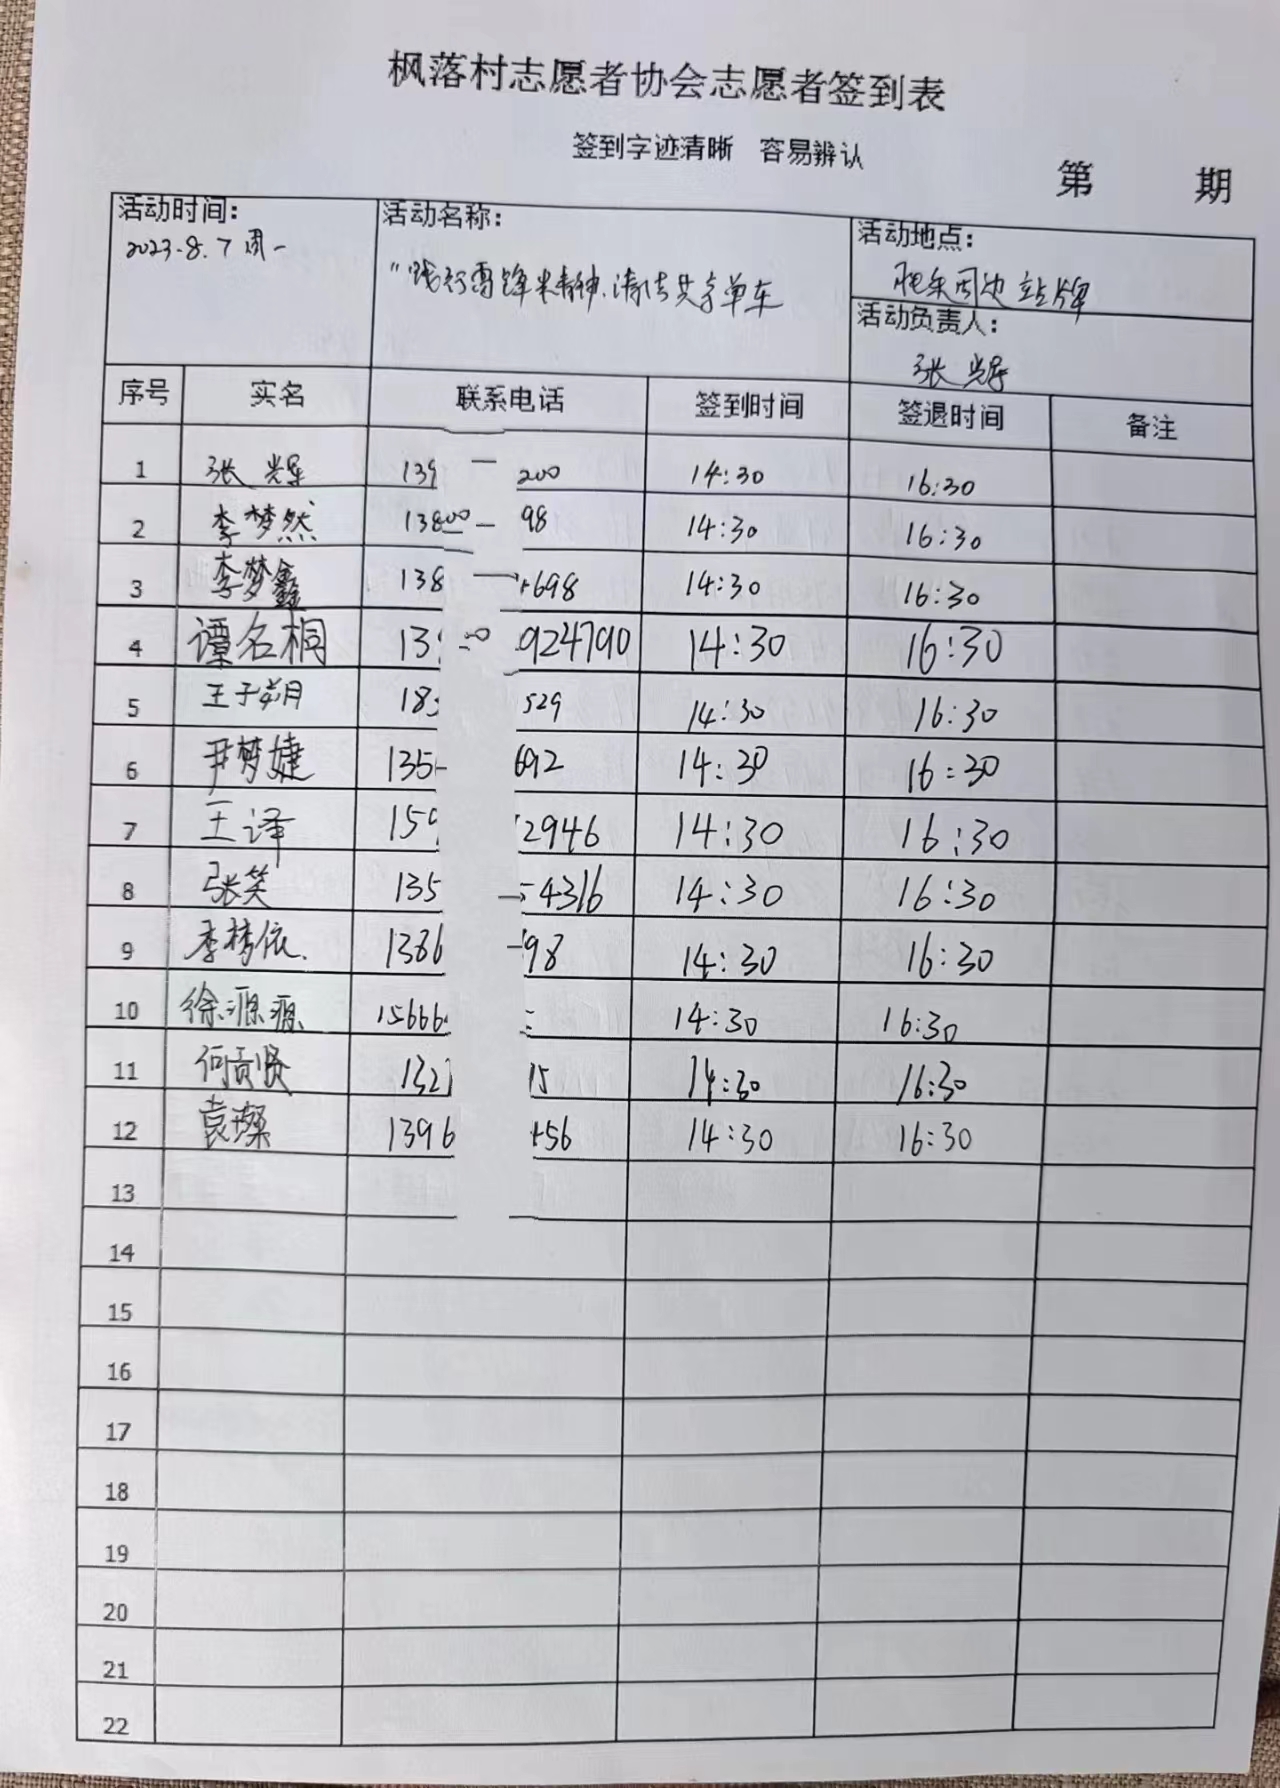 枫落村志愿者协会志愿者签到表
签到字迹清晰 容易辨认
第 期
活动时间： 活动名称： 活动地点：
2023.8.7 周一
"践行雷锋精神、清洁共享单车
周边站牌
活动负责人：
张辉
序号 实名 联系电话 签到时间 签退时间 备注
1 张辉 139 200 14:30 16:30
2 李梦然 138 98 14:30 16:30
3 李梦鑫 138 698 14:30 16:30
4 谭名桐 13 924790 14:30 16:30
5 王子 18 529 14:30 16:30
6 尹梦婕 135 692 14:30 16:30
7 王泽 159 2946 14:30 16:30
8 张笑 135 54316 14:30 16:30
9 李梦依 1386 98 14:30 16:30
10 徐源源 15666 14:30 16:30
11 何贡贤 132 15 14:30 16:30
12 袁璨 1396 56 14:30 16:30
13
14
15
16
17
18
19
20
21
22